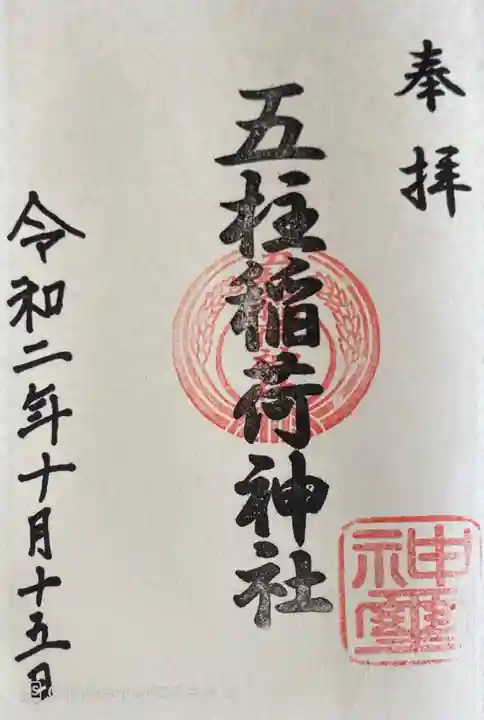 奉拝
五柱稲荷神社
神璽
令和二年十月十五日